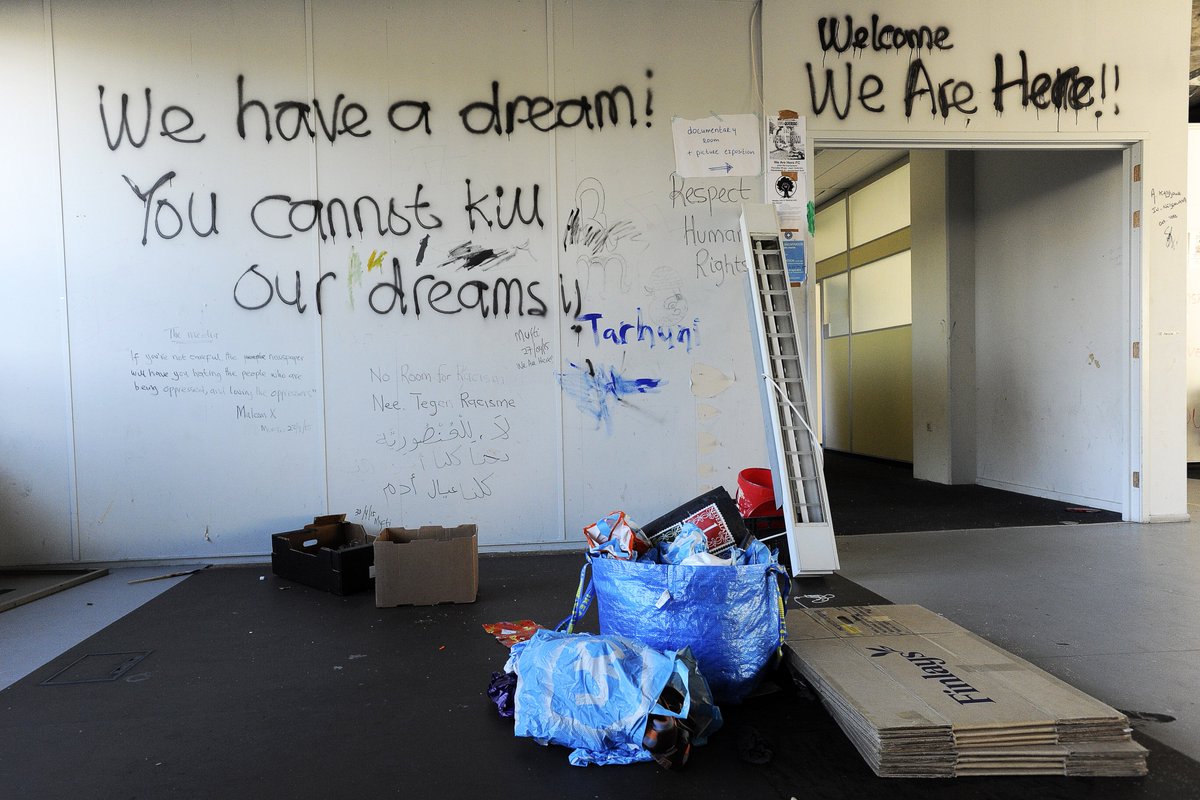 We have a dream!
You cannot kill
our dreams!!
Welcome
We Are Here!!
documentary
room
+ picture exposition
Respect
Human
Rights
Tarhuni
Mufti
27/09/15
We Are Here!
"If you're not careful, the newspaper
will have you hating the people who are
being oppressed, and loving the oppressors"
Malcom X
No Room for Racisme
Nee. Tegen Racisme
لا. للعنصورية
كلنا عيال أدم
Finlays